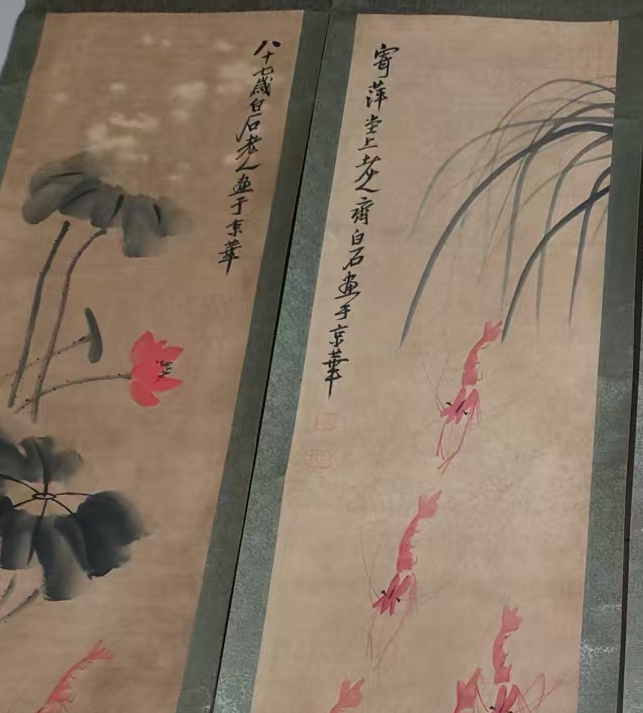 寄萍堂上老人齊白石画于京華
八十七歲白石老人画于京華